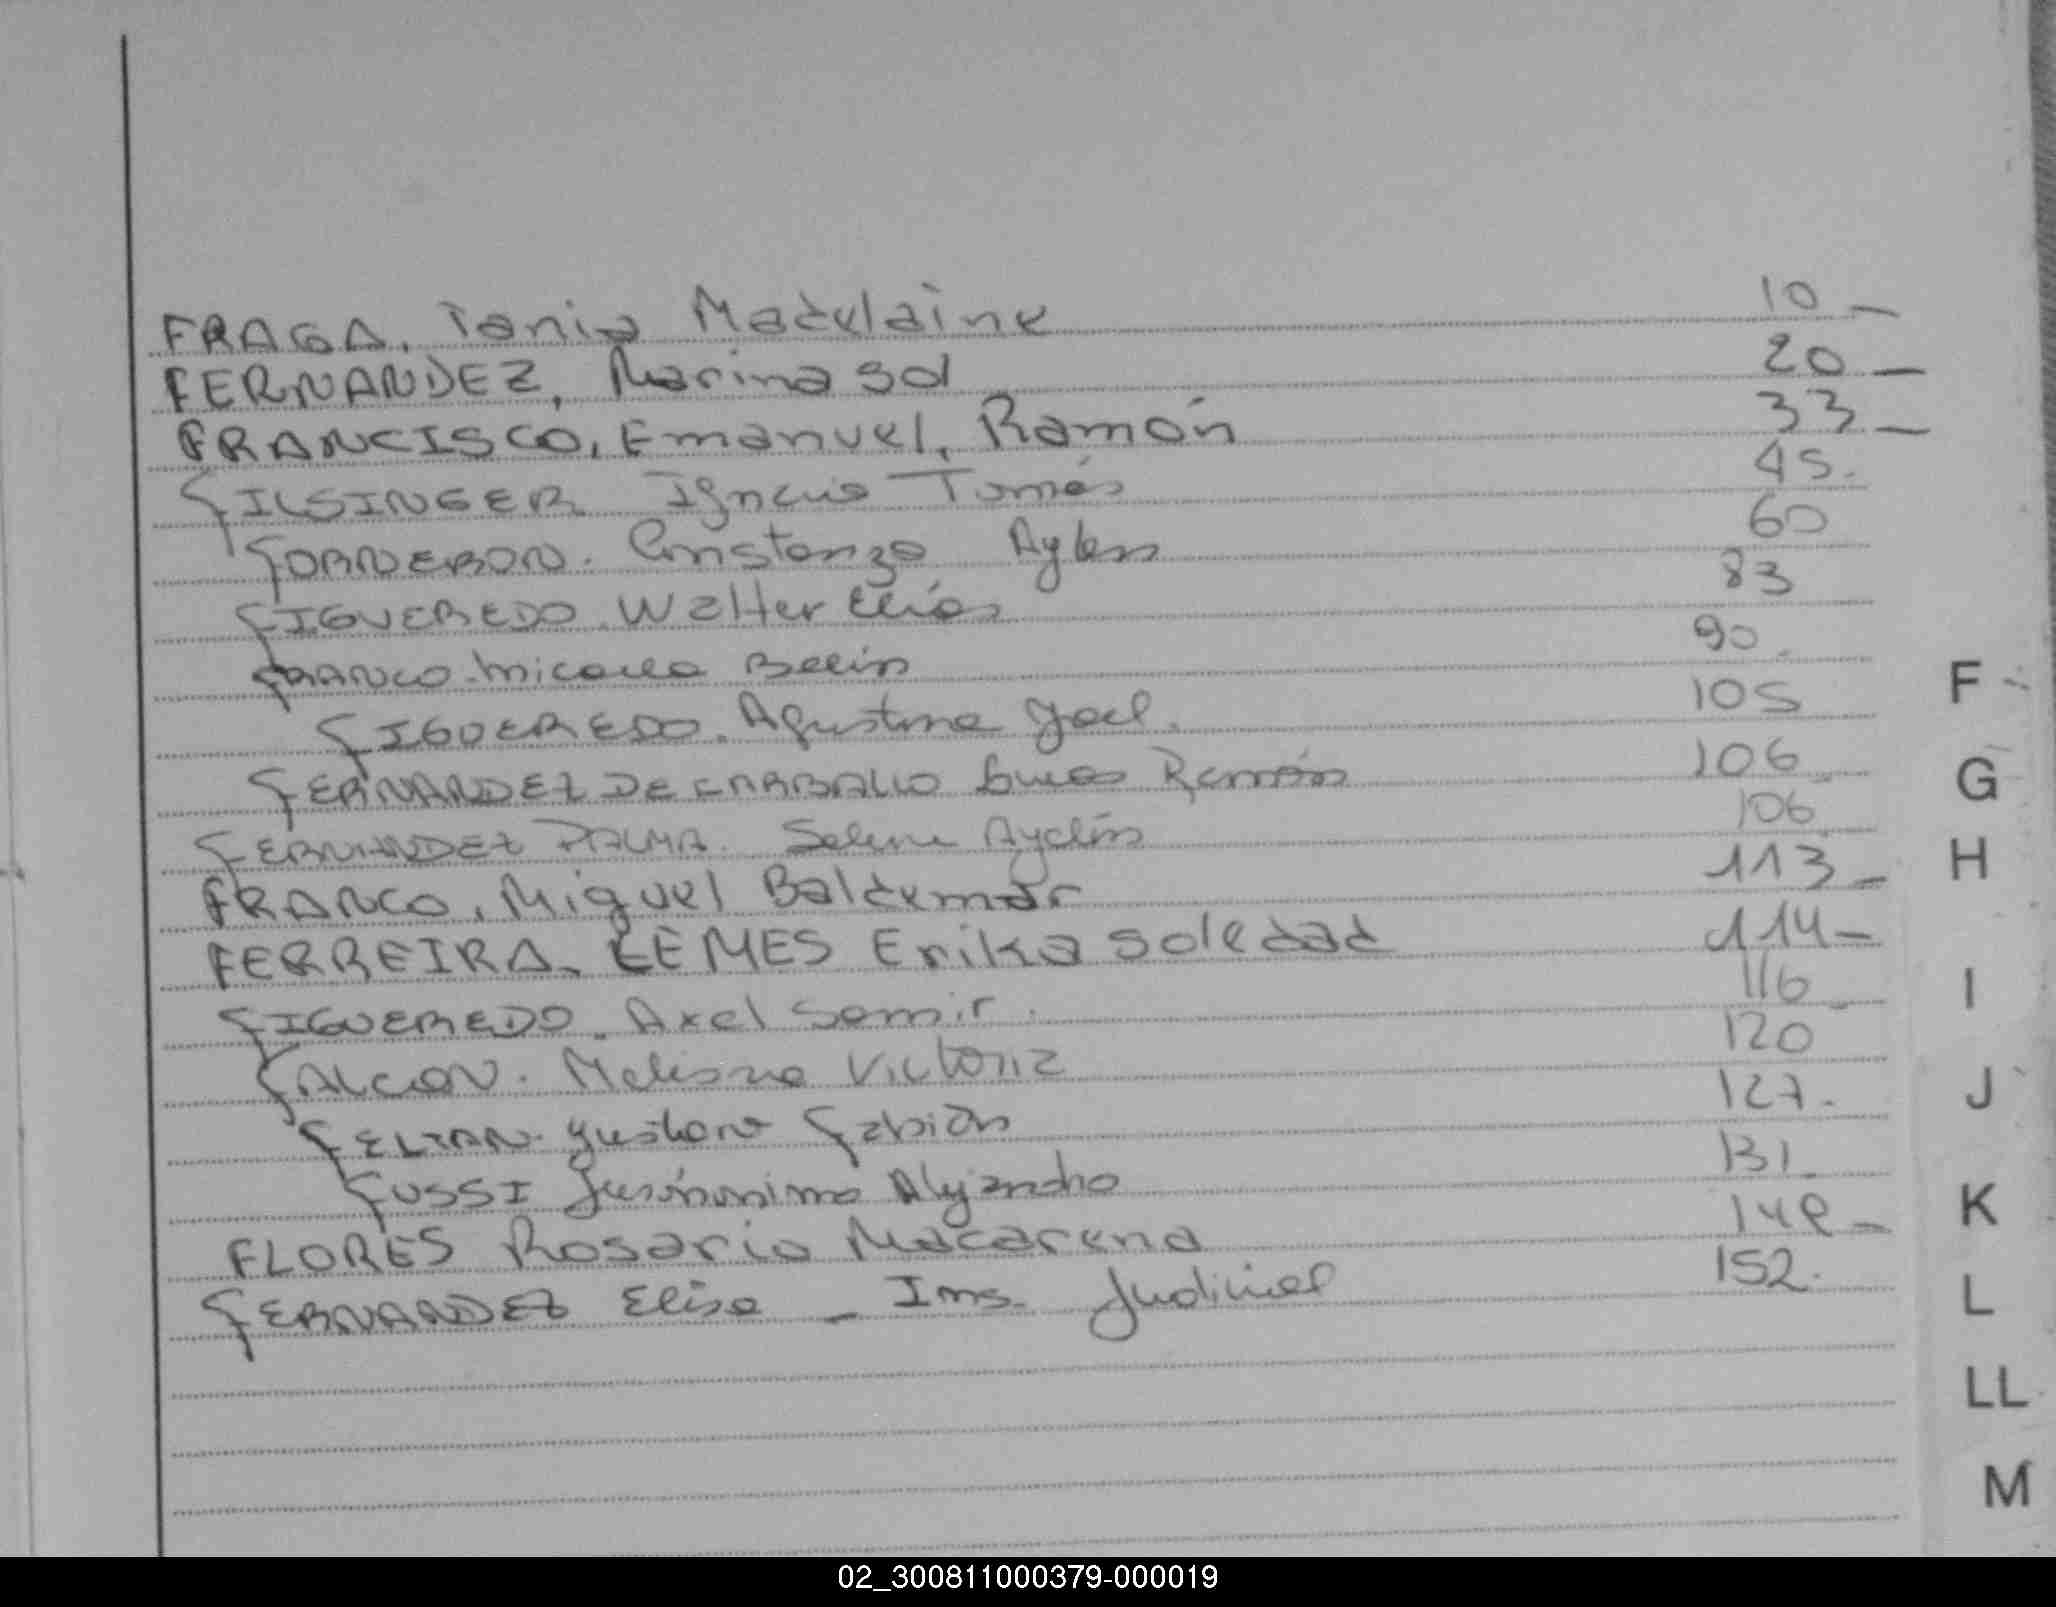 FRAGA, Tania Madelaine 10 _
FERNANDEZ, Marina Sol 20 _
FRANCISCO, Emanuel, Ramón 33 _
FILSINGER Ignacio Tomás 45.
FORNERON. Constanza Aylen 60
FIGUEREDO. Walter Elías 83
FRANCO. Micaela Belén 90.
FIGUEREDO. Agustina Joel. 105
FERNANDEZ DE CARBALLO Lucas Ramón 106
FERNANDEZ PALMA. Selene Aylén 106
FRANCO, Miguel Baldemar 113 _
FERREIRA, LEMES Erika Soledad 114 _
FIGUEREDO. Axel Samir. 116
FALCON. Melissa Victoria 120
FELIAN. Gustavo Fabián 127.
FUSSI Jerónimo Alejandro 131.
FLORES Rosario Macarena 149 _
FERNANDEZ Elisa _ Ins. Judicial 152.
F
G
H
I
J
K
L
LL
M
02_300811000379-000019